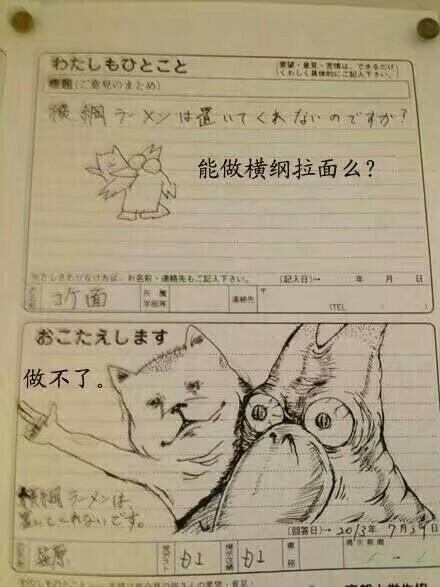 わたしもひとこと
(要望・意見・苦情は、できるだけ
くわしく具体的にご記入下さい。)
標題(ご意見のまとめ)
横綱ラーメンは置いてくれないのですか?
能做横纲拉面么?
※さしさわりなければ、お名前・連絡先もご記入下さい。 (記入日)→ 年 月 日
コケ面
所属
学部等
連絡先
〒
(TEL )
おこたえします
做不了。
横綱ラーメンは
置いてくれないです。
(回答日)→2013年7月3